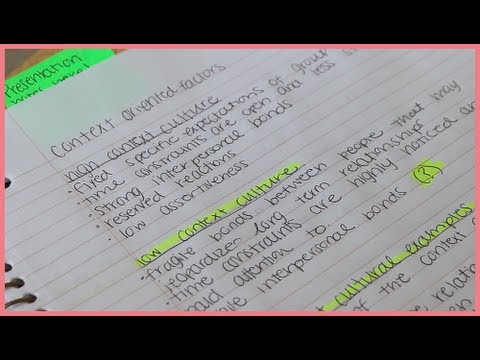 Presentation
Context oriented factors
high context culture
fixed specific expectations of group
time constraints are open and less
strong interpersonal bonds
reserved reactions
low assertiveness
low context culture
fragile bonds between people that may
long term relationships
time constraints are highly noticed and
paid attention to
interpersonal bonds (?)
cultural examples
of the context
relation